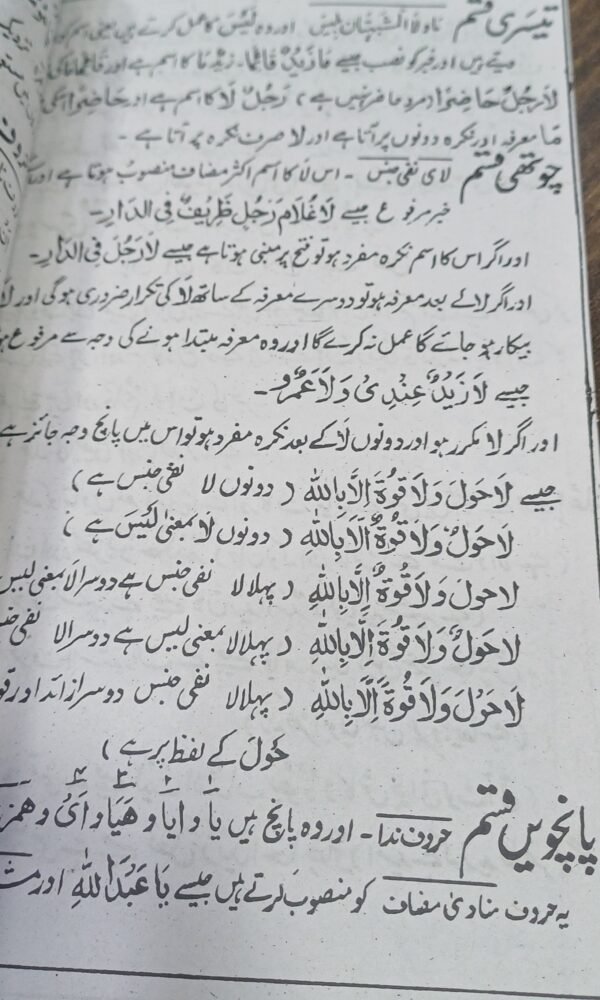 تیسری قسم ماولا المشبہتان بلیس اور وہ لَیْسَ کا عمل کرتے ہیں یعنی اسم کو
دیتے ہیں اور خبر کو نصب جیسے مَا زَیْدٌ قَائِمًا۔ زَیْدٌ مَا کا اسم ہے اور قَائِمًا
لَا رَجُلٌ حَاضِرًا (مرد حاضر نہیں ہے) رَجُلٌ لَا کا اسم ہے اور حَاضِرًا اسکی
مَا معرفہ اور نکرہ دونوں پر آتا ہے اور لا صرف نکرہ پر آتا ہے ۔
چوتھی قسم لائے نفی جنس ۔ اس لَا کا اسم اکثر مضاف منصوب ہوتا ہے اور
خبر مرفوع جیسے لَا غُلَامَ رَجُلٍ ظَرِیْفٌ فِی الدَّارِ۔
اور اگر اس کا اسم نکرہ مفرد ہو تو فتح پر مبنی ہوتا ہے جیسے لَا رَجُلَ فِی الدَّارِ۔
اور اگر لائے بعد معرفہ ہو تو دوسرے معرفہ کے ساتھ لَا کی تکرار ضروری ہوگی اور لَا
بیکار ہو جائے گا عمل نہ کرے گا اور وہ معرفہ مبتدا ہونے کی وجہ سے مرفوع
جیسے لَا زَیْدٌ عِنْدِیْ وَلَا عَمْرٌو ۔
اور اگر لا مکرر ہو اور دونوں لَا کے بعد نکرہ مفرد ہو تو اس میں پانچ وجہ جائز ہے
جیسے لَا حَوْلَ وَلَا قُوَّةَ اِلَّا بِاللّٰهِ ( دونوں لا نفی جنس ہے )
لَا حَوْلٌ وَلَا قُوَّةٌ اِلَّا بِاللّٰهِ ( دونوں لَا بمعنی لَیْسَ ہے )
لا حولَ وَلَا قُوَّةٌ اِلَّا بِاللّٰهِ ( پہلا لا نفی جنس ہے دوسرا لَا بمعنی لیس
لَا حَوْلٌ وَلَا قُوَّةَ اِلَّا بِاللّٰهِ ( پہلا لا بمعنی لیس ہے دوسرا لا نفی
لَا حَوْلَ وَلَا قُوَّةً اِلَّا بِاللّٰهِ ( پہلا لا نفی جنس دوسرا زائد اور
حَوْلَ کے لفظ پر ہے )
پانچویں قسم حروف ندا ۔ اور وہ پانچ ہیں یَا و ایَا و هَیَا و اَیْ و
یہ حروف منادیٰ مضاف کو منصوب کرتے ہیں جیسے یَا عَبْدَ اللّٰهِ اور